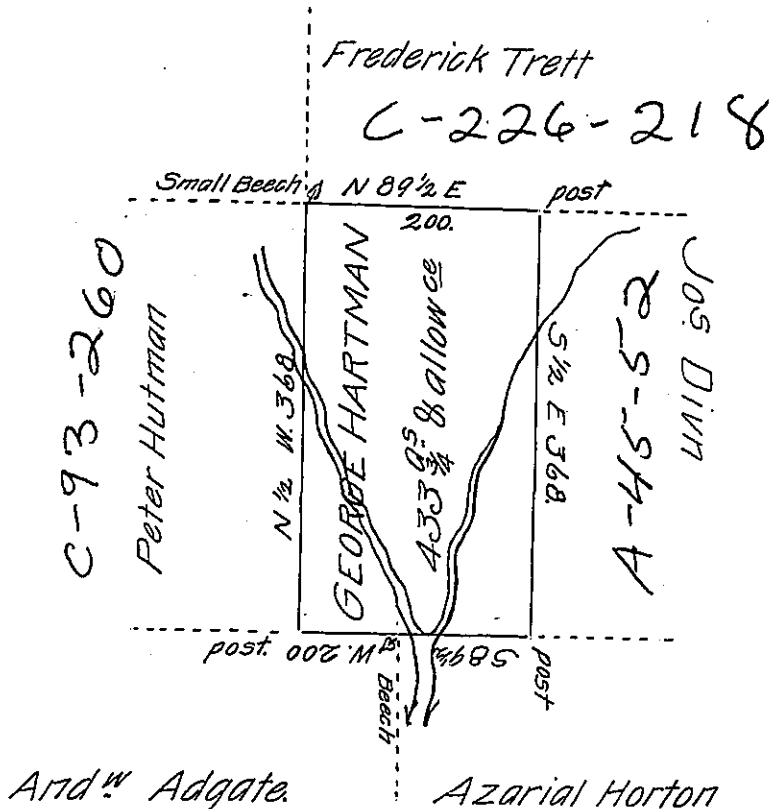 Frederick Trett
C-226-218
Small Beech N 89½ E post
200.
C-93-260
Peter Hutman
N ½ W. 368
GEORGE HARTMAN
433 aS ¾ & allowce
S ½ E 368.
A-45-52
Jos. Divn
post. S 89½ W. 200
post
Beech
Andw Adgate.
Azarial Horton